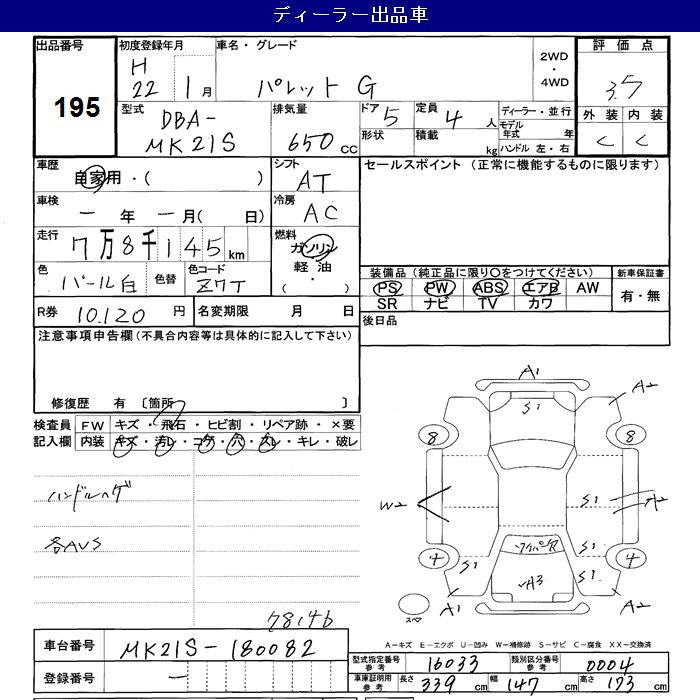 ディーラー出品車
出品番号
195
初度登録年月
H
22 1月
車名・グレード
パレット G
2WD
・
4WD
評価点
3.5
外装 内装
C C
型式
DBA-
MK21S
排気量
650 cc
ドア 5
形状
定員 4 人
積載 kg
ディーラー・並行
モデル
年式 年
ハンドル 左・右
車歴
自家用・( )
シフト
AT
セールスポイント (正常に機能するものに限ります)
車検
ー 年 ー 月( 日)
冷房
AC
走行
7万8千145km
燃料
ガソリン
軽油
・
( )
色
パール白
色替
色コード
Z7T
装備品 (純正品に限り○をつけてください)
PS PW ABS エアB AW
SR ナビ TV カワ
新車保証書
有・無
R券 10,120 円
名変期限 月 日
後日品
注意事項申告欄 (不具合内容等は具体的に記入して下さい)
修復歴 有 〔箇所 〕
検査員 FW キズ・飛石・ヒビ割・リペア跡・×要
記入欄 内装 キズ・汚レ・コゲ・穴・スレ・キレ・破レ
ハンドルハゲ
各AUS
78146
A1
S1
A2
8
8
W2
S1
A2
ワイパーR
S1
4
4
S1
S1
A3
スペア
A1
A2
A-キズ E-エクボ U-凹み W-補修跡 S-サビ C-腐食 XX-交換済
車台番号 MK21S-180082
登録番号 ー
型式指定番号
参考
16033
類別区分番号
参考
0004
車庫証明用
参考
長さ 339 cm 幅 147 cm 高さ 173 cm